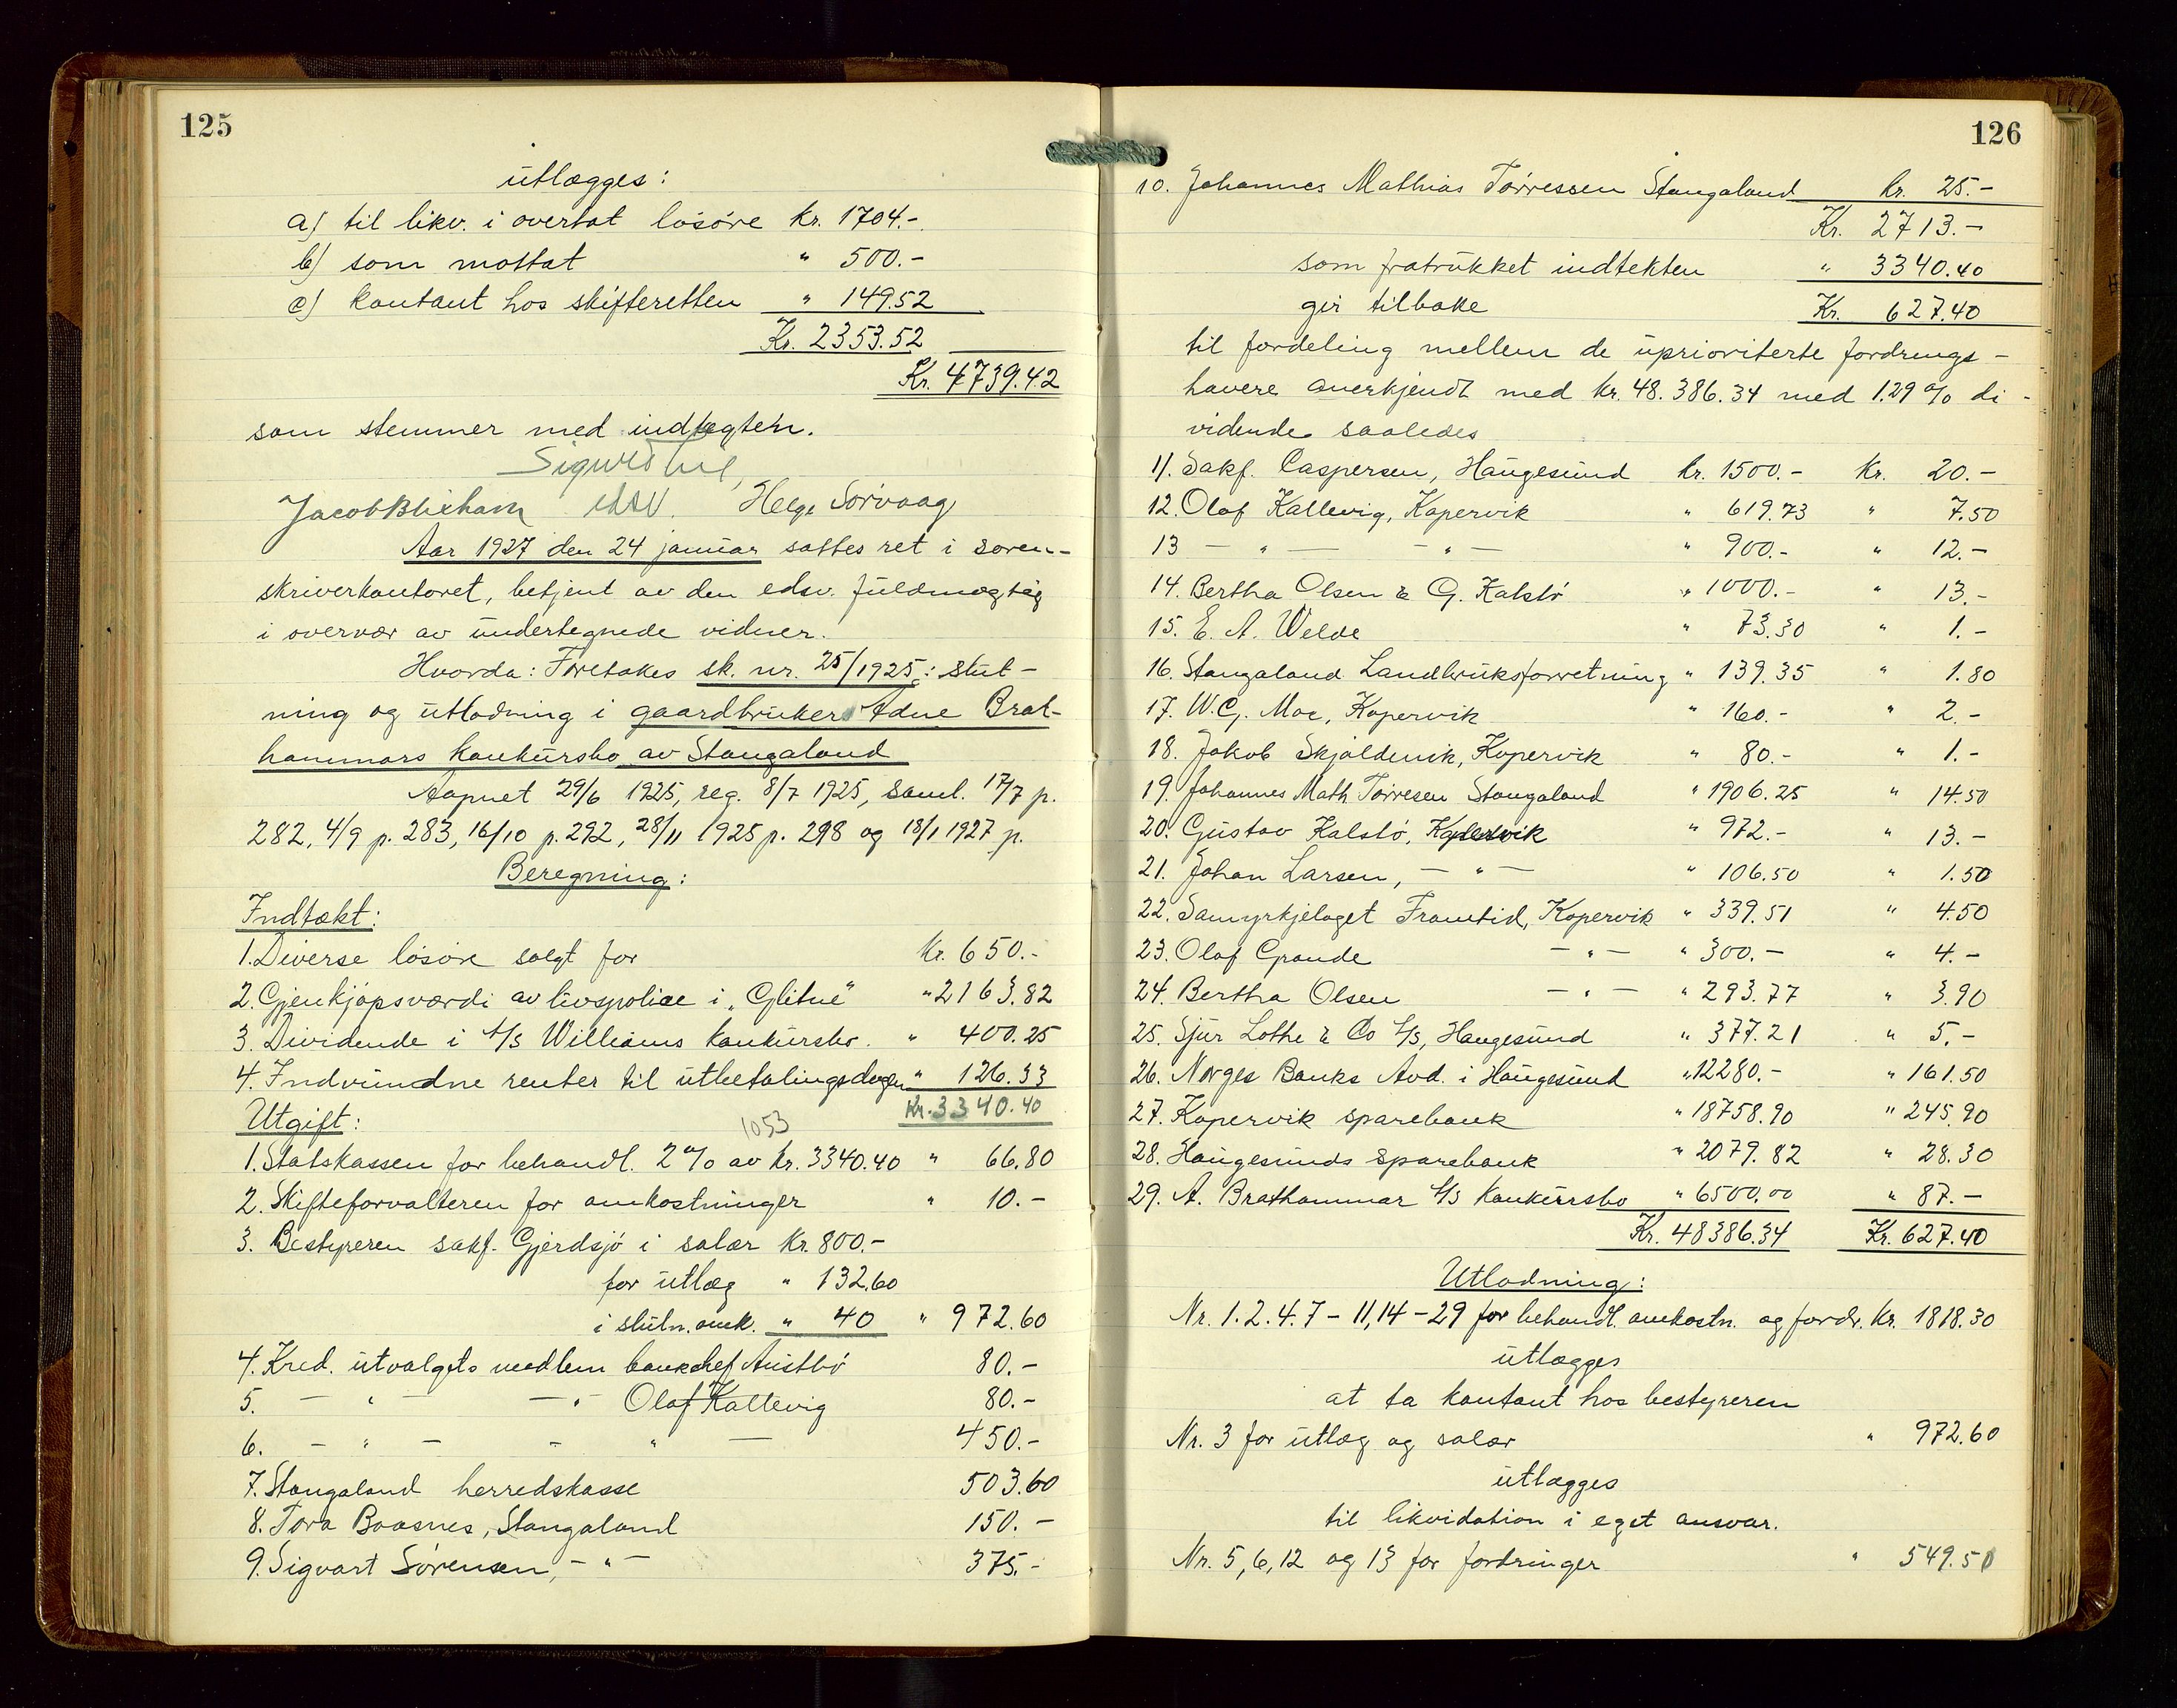 125
utlægges:
a) til likv. i overtat løsøre kr. 1704.-
b) som mottat " 500.-
c) kontant hos skifteretten " 149.52
Kr. 2353.52
Kr. 4739.42
som stemmer med indtægten.
Helge Sørvaag
Aar 1927 den 24 januar sattes ret i soren-
skriverkontoret, betjent av den edsv. fuldmægtig
i overvær av undertegnede vidner.
Hvorda: Foretokes sk. nr. 25/1925: slut-
ning og utlodning i gaardbruker Adne Brat-
hammars konkursbo av Stangaland
Aapnet 29/6 1925, reg. 8/7 1925, saml. 17/7 p.
282, 4/9 p. 283, 16/10 p. 292, 28/11 1925 p. 298 og 18/1 1927 p.
Beregning:
Indtækt:
1. Diverse løsøre solgt for Kr. 650.-
2. Gjenkjøpsværdi av livspolice i "Glitne" " 2163.82
3. Dividende i A/S Williams konkursbo. " 400.25
4. Indvundne renter til utbetalingsdagen " 126.33
Kr. 3340.40
Utgift:
1053
1. Statskassen for behandl. 2% av kr. 3340.40 " 66.80
2. Skifteforvalteren for omkostninger " 10.-
3. Bestyreren sakf. Gjerdsjø i salær Kr. 800.-
for utlæg " 132.60
i slutn. omk. " 40 " 972.60
4. Kred. utvalgets medlem bankchef Austbø 80.-
5. — " — — " Olaf Kallevig 80.-
6. — " — — " — 450.-
7. Stangaland herredskasse 503.60
8. Tora Baasnes, Stangaland 150.-
9. Sigvart Sørensen, — " — 375.-
126
10. Johannes Mathias Tørressen Stangaland kr. 25.-
Kr. 2713.-
som fratrukket indtekten " 3340.40
gir tilbake Kr. 627.40
til fordeling mellem de uprioriterte fordrings-
havere anerkjendt med kr. 48.386.34 med 1.29% di-
vidende saaledes
11. Sakf. Caspersen, Haugesund kr. 1500.- Kr. 20.-
12. Olaf Kallevig, Kopervik " 619.73 " 7.50
13 — " — — " — " 900.- " 12.-
14. Bertha Olsen & G. Kalstø " 1000.- " 13.-
15. E. A. Welde " 73.30 " 1.-
16. Stangaland Landbruksforretning " 139.35 " 1.80
17. W. G. Moe, Kopervik " 160.- " 2.-
18. Jakob Skjoldevik, Kopervik " 80.- " 1.-
19. Johannes Math Tørresen Stangaland " 1906.25 " 14.50
20. Gustav Kalstø, Kopervik " 972.- " 13.-
21. Johan Larsen, — " — " 106.50 " 1.50
22. Samyrkjelaget Framtid, Kopervik " 339.51 " 4.50
23. Olaf Grande — " — " 300.- " 4.-
24. Bertha Olsen — " — " 293.77 " 3.90
25. Sjur Lothe & Co A/S, Haugesund " 377.21 " 5.-
26. Norges Banks Avd. i Haugesund " 12280.- " 161.50
27. Kopervik sparebank " 18758.90 " 245.90
28. Haugesunds sparebank " 2079.82 " 28.30
29. A. Brathammar A/S konkursbo " 6500.00 " 87.-
Kr. 48386.34 Kr. 627.40
Utlodning:
Nr. 1. 2. 4. 7 - 11, 14 - 29 for behandl. omkostn. og fordr. kr. 1818.30
utlægges
at ta kontant hos bestyreren
Nr. 3 for utlæg og salær " 972.60
utlægges
til likvidation i eget ansvar.
Nr. 5, 6, 12 og 13 for fordringer " 549.50